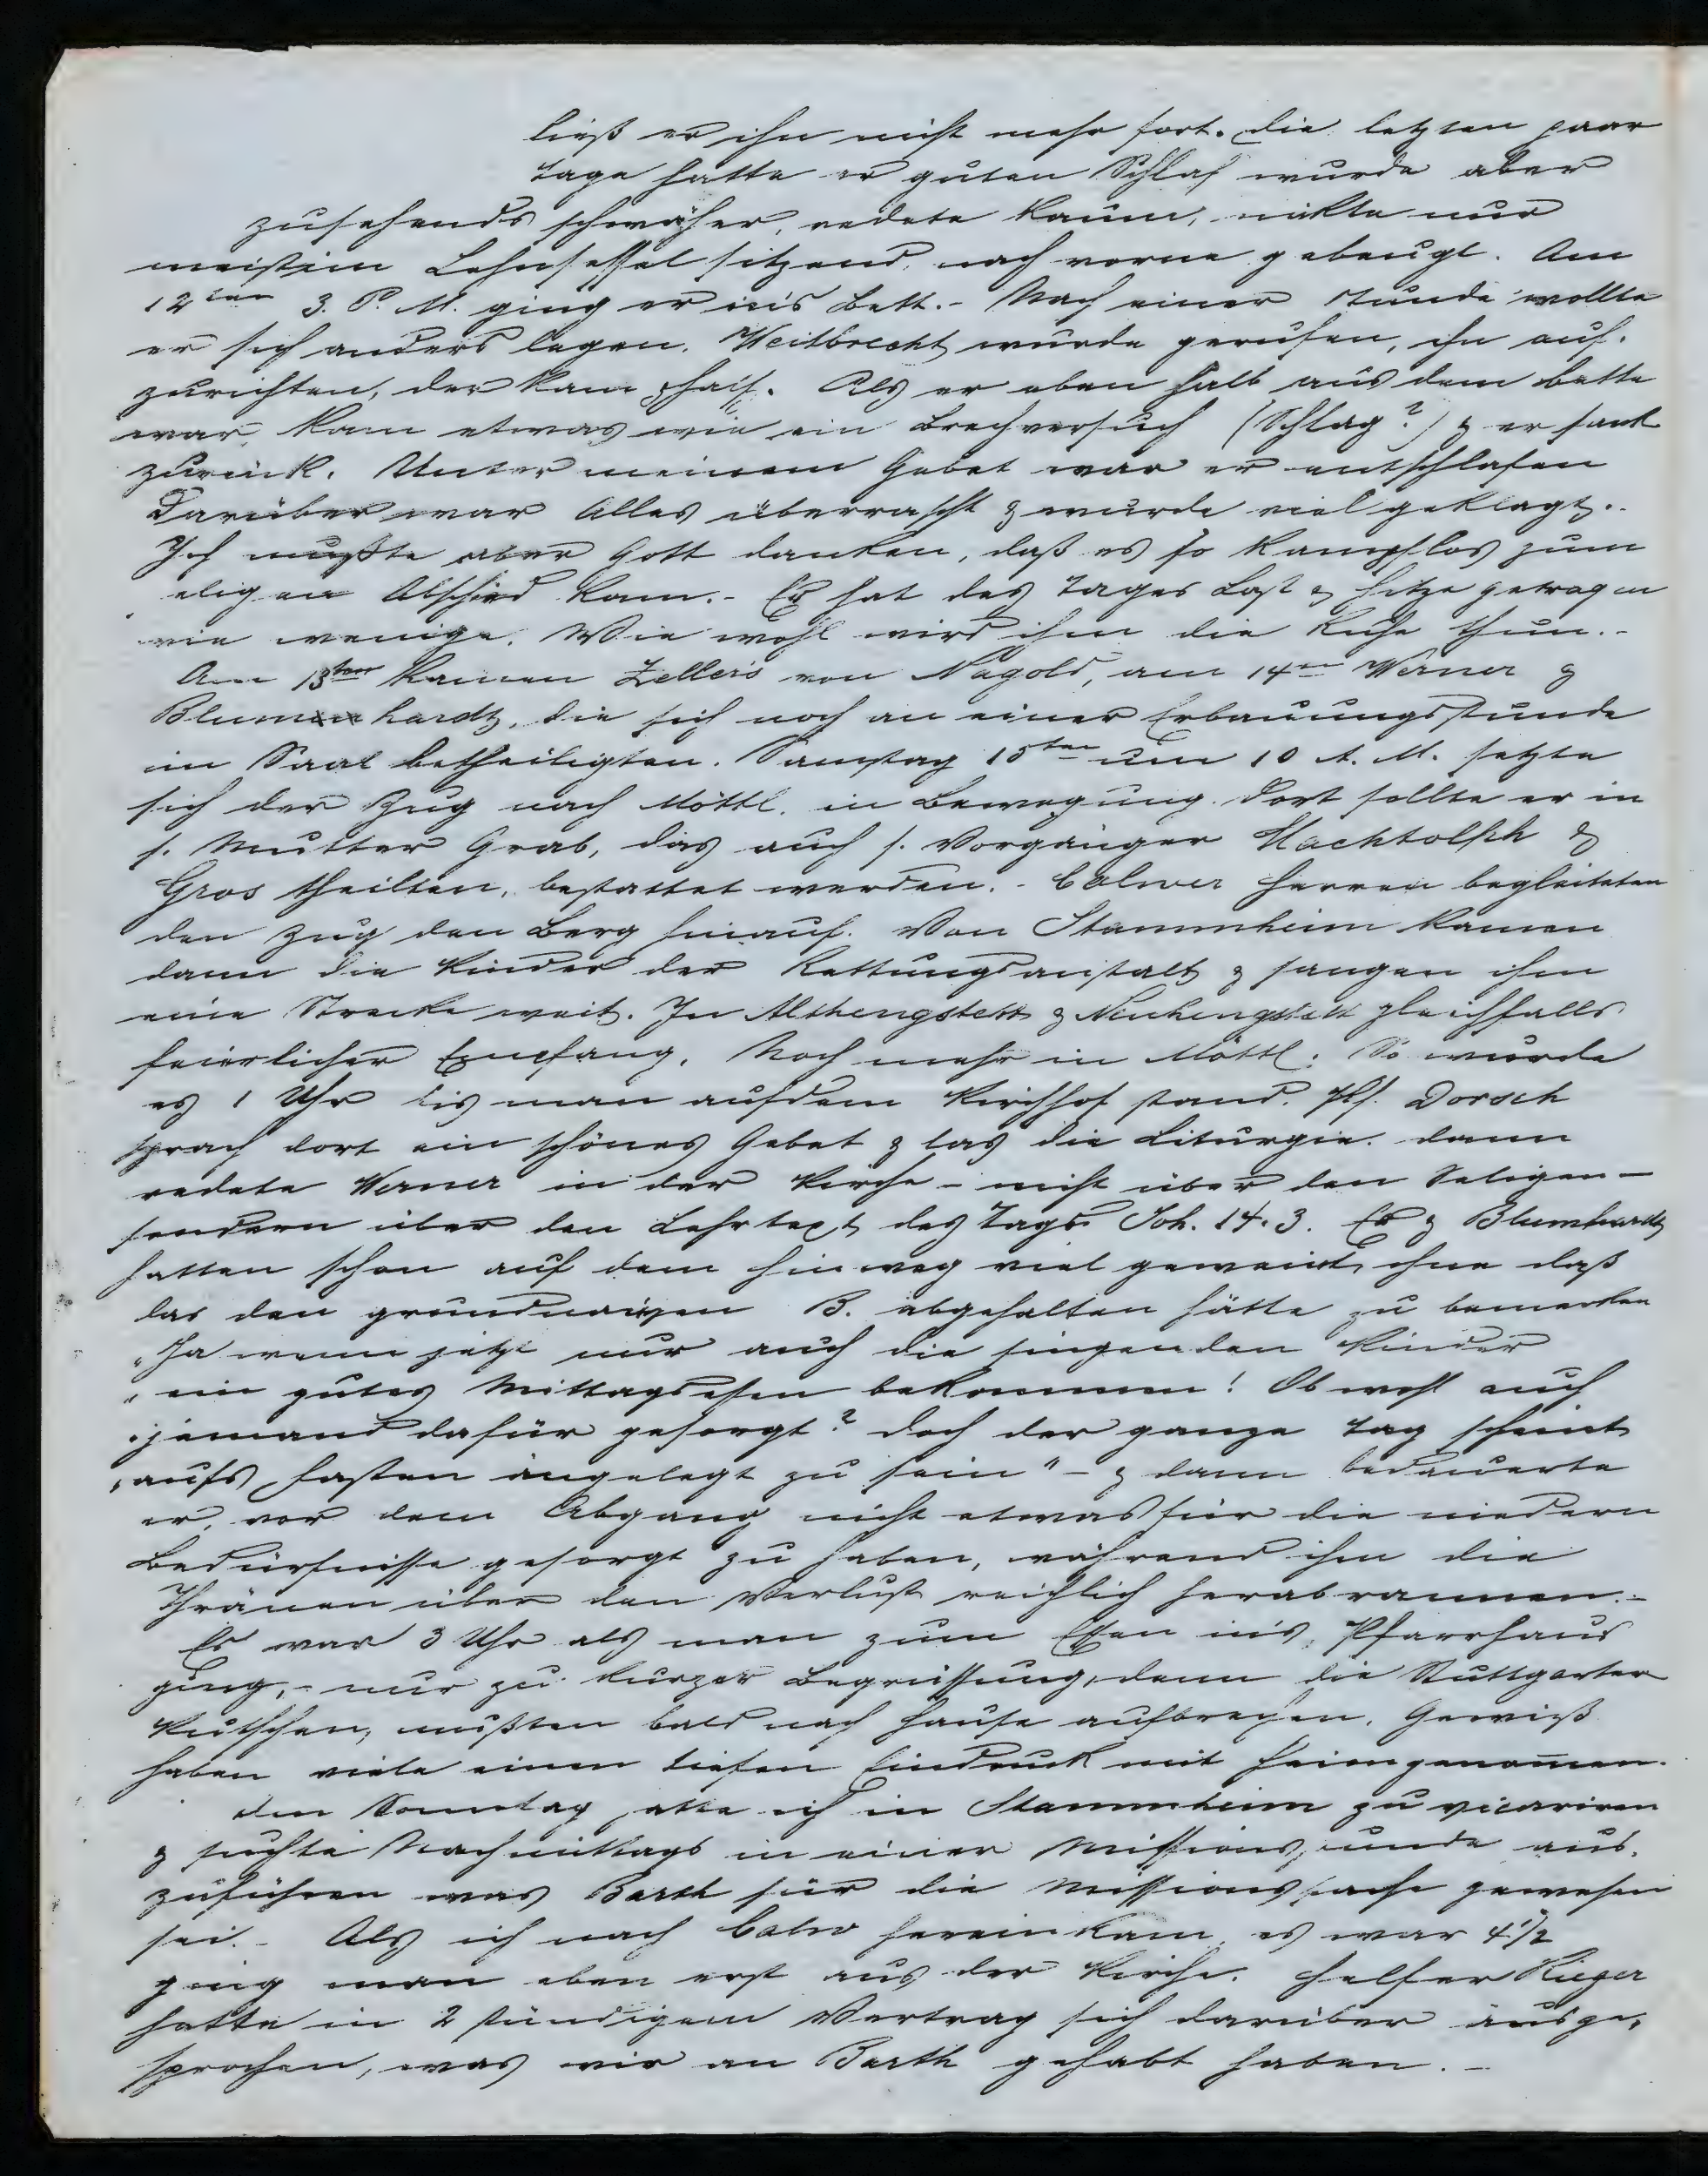 ließ er ihn nicht mehr fort. Die letzten paar
Tage hatte er guten Schlaf wurde aber
zusehends schwächer, redete kaum, nickte nur
meist im Lehnsessel sitzend, nach vorne gebeugt. Am
12ten 3. P. M. ging er ins Bett. - Nach einer Stunde wollte
er sich anders legen. Weitbrecht wurde gerufen, ihn auf-
zurichten, der kam & half. Als er eben halb aus dem Bette
war, kam etwas wie ein Brechversuch (Schlag?) & er sank
zurück. Unter meinem Gebet war er entschlafen
Darüber war Alles überrascht & wurde viel geklagt. -
Ich mußte aber Gott danken, daß es so kampflos zum
eligen Abschied kam. - Er hat des Tages Last & Hitze getragen
wie wenige. Wie wohl wird ihm die Ruhe thun. -
Am 13ten kamen Zellers von Nagold, am 14ten Werner &
Blumhardt, die sich noch an einer Erbauungsstunde
im Saal betheiligten. Samstag 15ten um 10 A. M. setzte
sich der Zug nach Möttl. in Bewegung. Dort sollte er in
s. Mutter Grab, das auch s. Vorgänger Machtolph &
Gros theilten, bestattet werden. - Calwer Herren begleiteten
den Zug den Berg hinauf. Von Stammheim kamen
dann die Kinder der Rettungsanstalt & sangen ihm
eine Strecke weit. In Althengstett & Neuhengstett gleichfalls
feierlicher Empfang. Noch mehr in Möttl. So wurde
es 1 Uhr bis man auf dem Kirchhof stand. Pf. Dorsch
sprach dort ein schönes Gebet & las die Liturgie. Dann
redete Werner in der Kirche - nicht über den Seligen -
sondern über den Lehrtext des Tags Joh. 14.3. Er & Blumhardt
hatten schon auf dem Hinweg viel geweint, ohne daß
das den grundnaiven B. abgehalten hätte zu bemerken
"Ja wenn jetzt nur auch die singenden Kinder
"ein gutes Mittagessen bekommen! Ob wohl auch
"jemand dafür gesorgt? Doch der ganze Tag scheint
"aufs Fasten angelegt zu sein" - & dann bedauerte
er, vor dem Abgang nicht etwas für die niedern
Bedürfnisse gesorgt zu haben, während ihm die
Thränen über den Verlust reichlich herabrannen. -
Es war 3 Uhr als man zum Essen ins Pfarrhaus
ging, - nur zu kurzer Begrüssung, denn die Stuttgarter
Kutschen, mußten bald nach Hause aufbrechen. Gewiß
haben viele einen tiefen Eindruck mit heimgenommen.
Am Sonntag hatte ich in Stammheim zu vicariren
& suchte Nachmittags in einer Missionsstunde aus-
zuführen was Barth für die Missionssache gewesen
sei. - Als ich nach Calw hereinkam, es war 4 1/2
ging man eben erst aus der Kirche. Helfer Rieger
hatte in 2 stündigem Vortrag sich darüber ausge-
sprochen, was wir an Barth gehabt haben. -